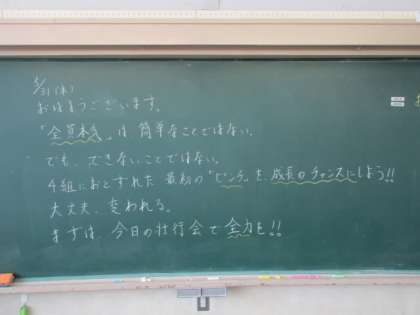 5/31(木)
おはようございます。
「全員本気」は簡単なことではない。
でも、できないことではない。
4組におとずれた最初の「ピンチ」を成長のチャンスにしよう!!
大丈夫、変われる。
まずは、今日の壮行会で全力を!!